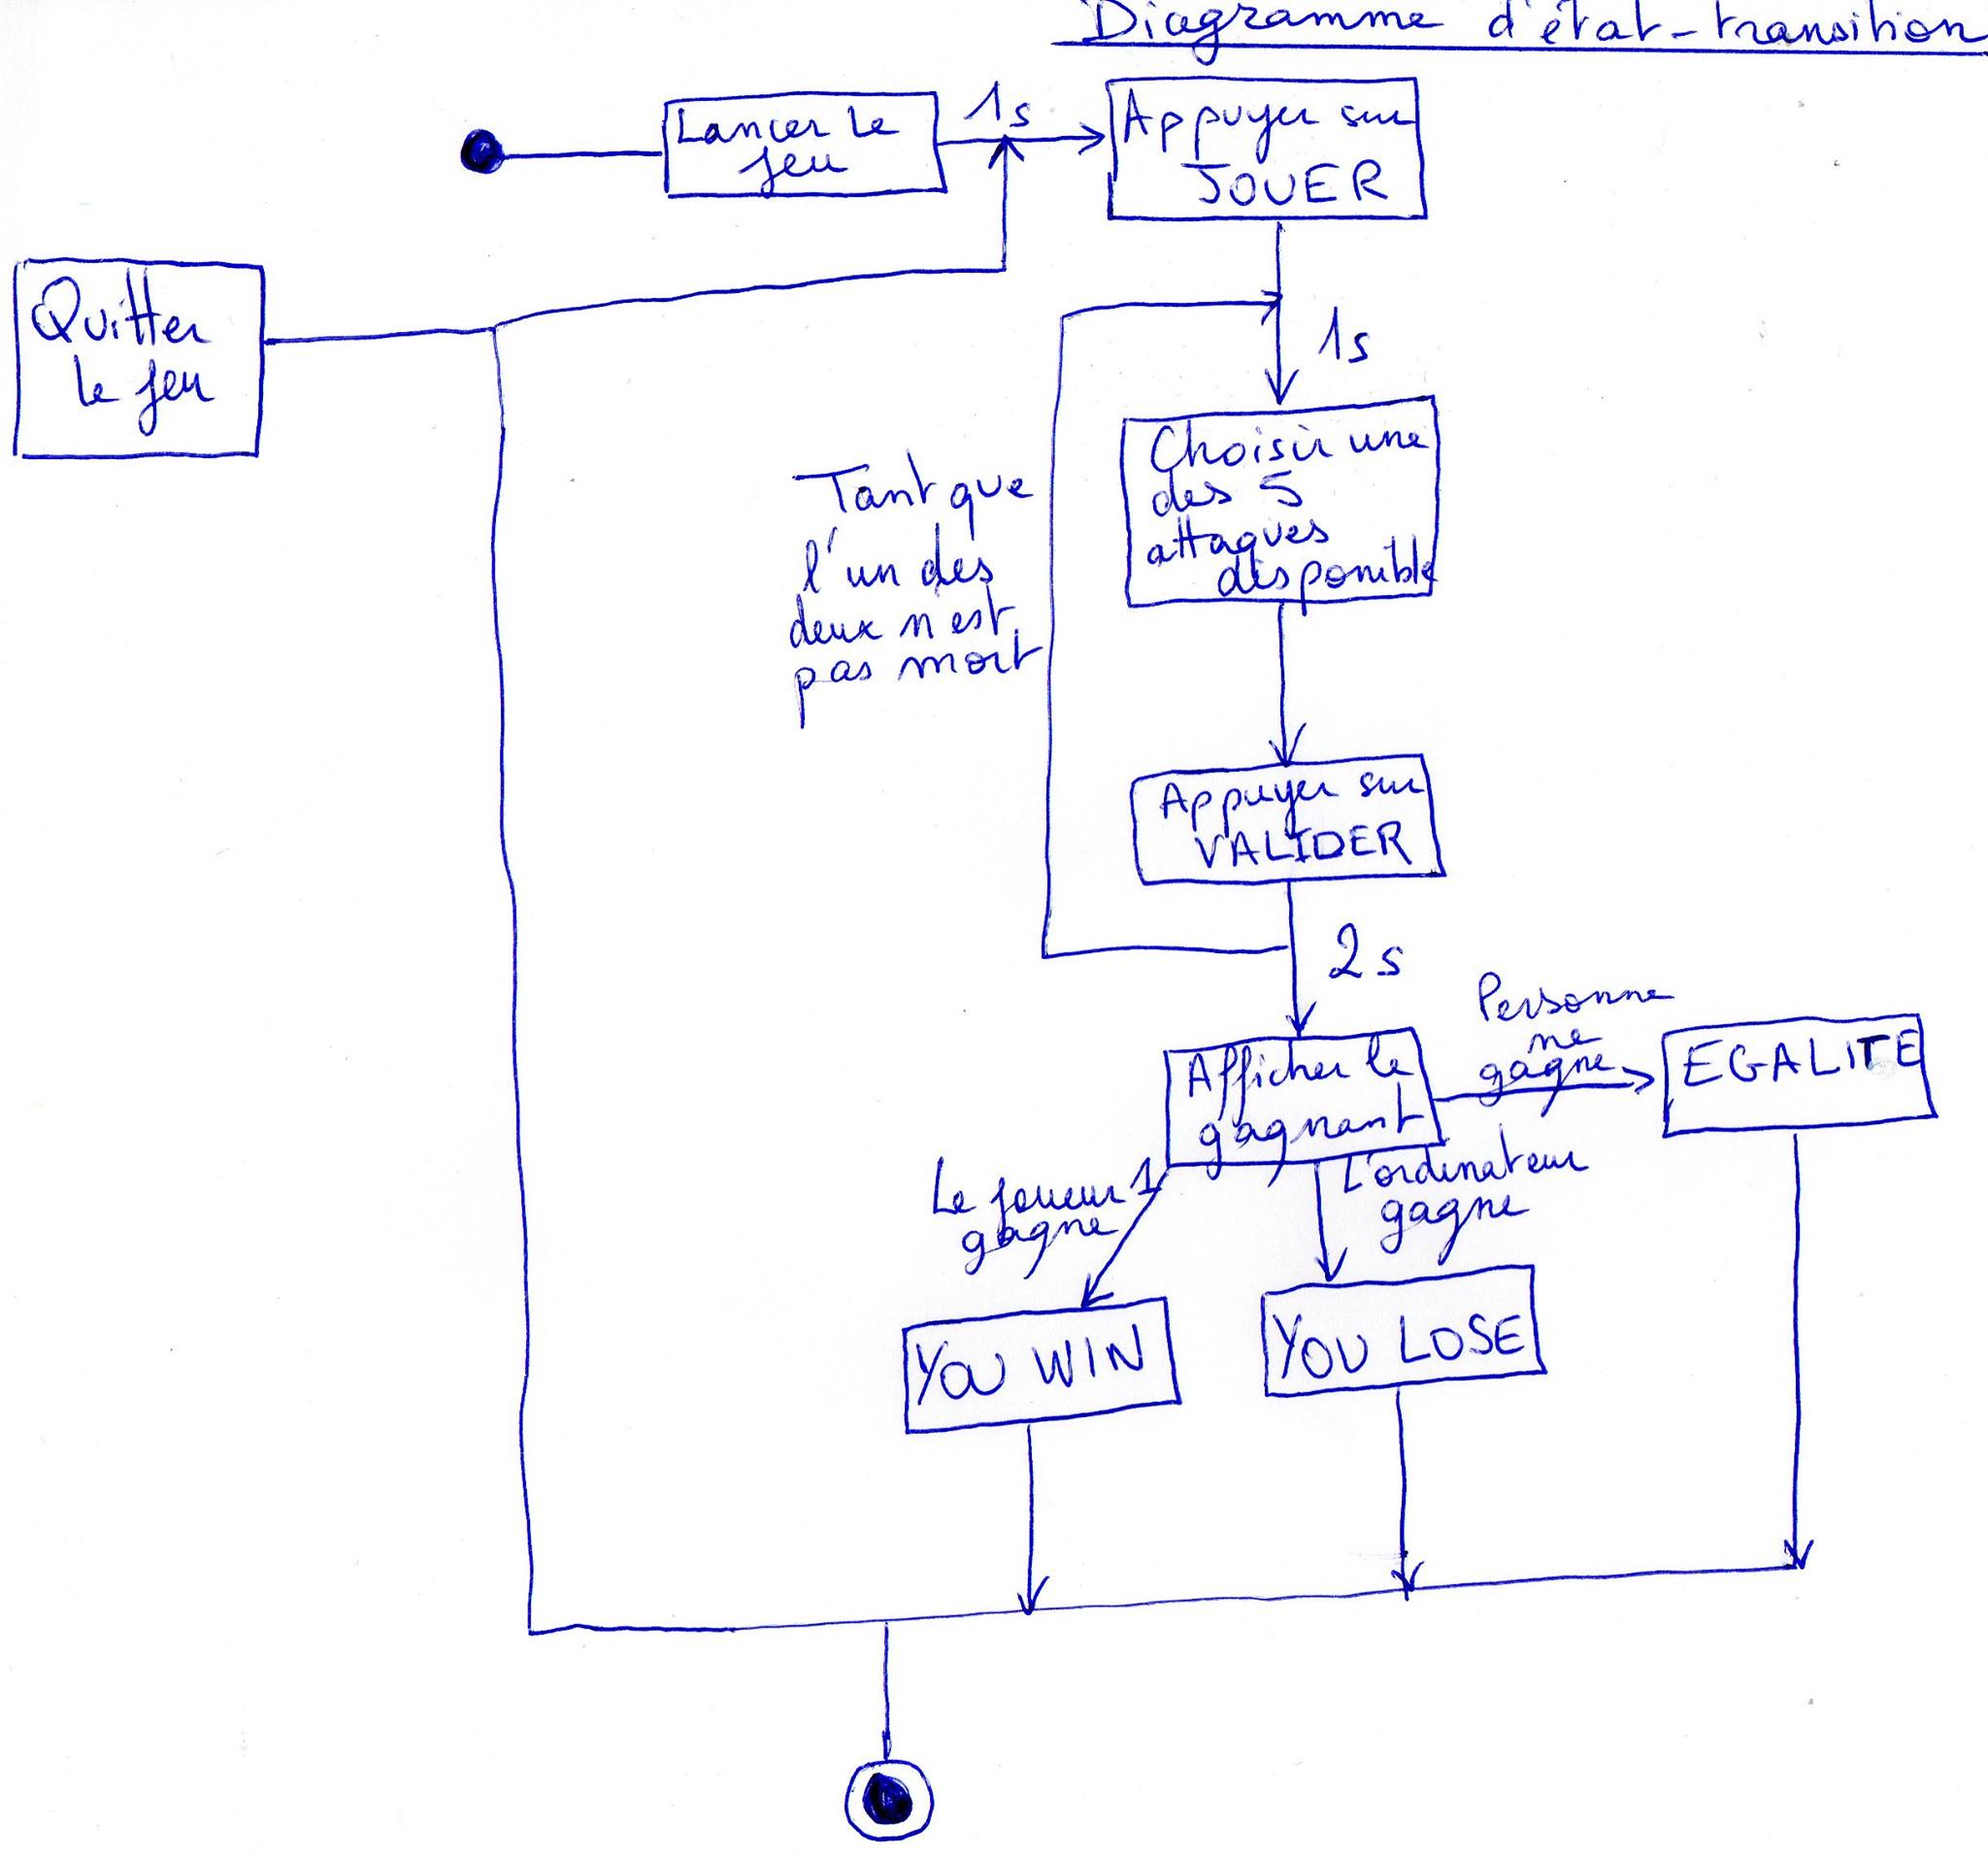 Diagramme d'état-transition
Lancer le
jeu
1s
Appuyer sur
JOUER
Quitter
le jeu
1s
Choisir une
des 5
attaques
disponible
Tant que
l'un des
deux n'est
pas mort
Appuyer sur
VALIDER
2s
Afficher le
gagnant
Personne
ne
gagne
EGALITE
Le joueur 1
gagne
L'ordinateur
gagne
YOU WIN
YOU LOSE